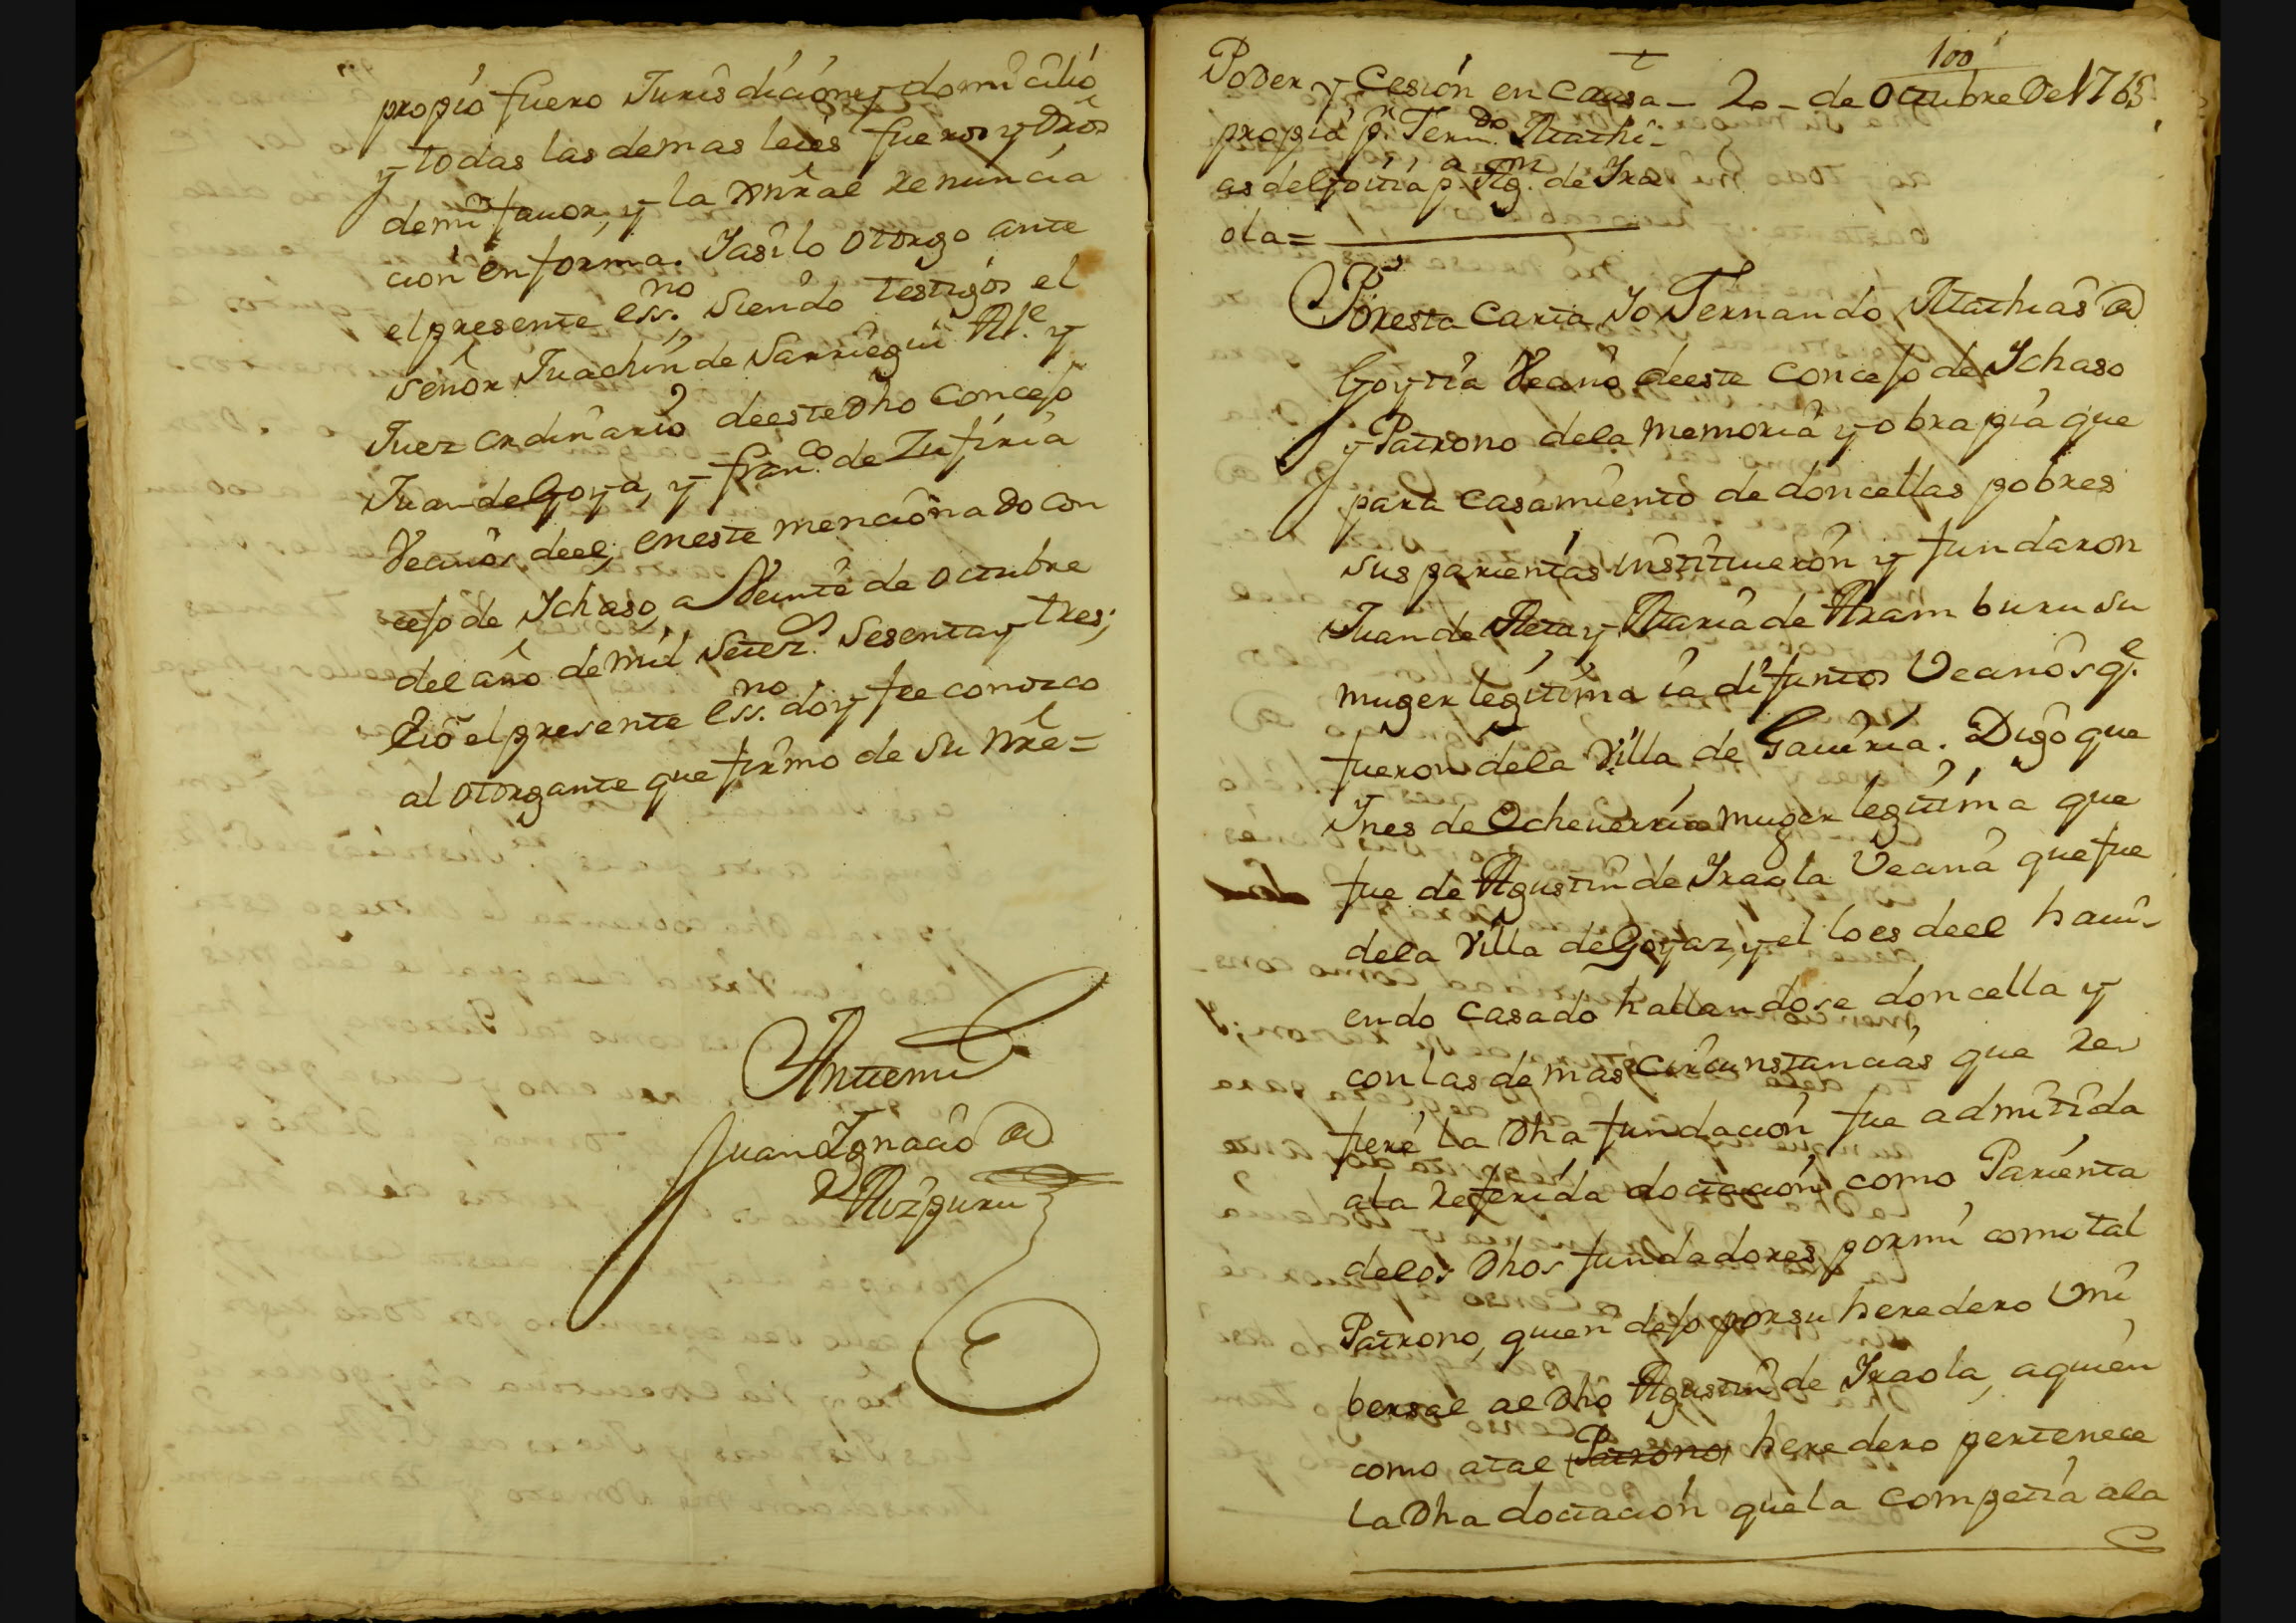 propio fuero Jurisdicion y domicilio
y todas las demas leies fueros y dros
de mi fauor, y la Gnŕal renuncia
cion en forma. Jasilo otorgo ante
el presente ess.no siendo testigos el
señor Juachin de Sarriegui Al.e y
Juez ordinario de este dho concejo
Juan de Goya, y fran.co de Zufiria
Vecinos deel, en este mencionado con
cejo de Ichaso, a Veinte de octubre
del año de mil setez.s sesenta y tres;
E io el presente ess.no doy fee conozco
al otorgante que firmo de su nr̃e =
Antemi
Juan Ignacio de
Aizpuru
100
Poder y Cesion en Causa - 20 - de Octubre De 1763
propia p.r Fern.do Mathi-
as de Goitia p.a Ag.tn de Ira
ola =
Por esta Carta Io Fernando Mathias de
Goytia Vecino de este concejo de Ichaso
y Patrono de la memoria y obra pia que
para casamiento de doncellas pobres
sus parientas instituieron y fundaron
Juan de Aeta y Maria de Aramburu su
muger legitima ia difuntos Vecinos q.e
fueron dela Villa de Gauiria. Digo que
Ines de Echeuerria muger legitima que
fue de Agustin de Iraola Vecina que fue
dela Villa de Goyaz, y el lo es deel haui-
endo casado hallandose doncella y
con las demas circunstancias que re
fiere la dha fundacion fue admitida
ala referida dotacion como Parienta
delos dhos fundadores por mi como tal
Patrono, quien dejo por su heredero Uni
bersal al dho Agustin de Iraola, a quien
como a tal Patrono heredero pertenece
la dha dotacion que la competia ala